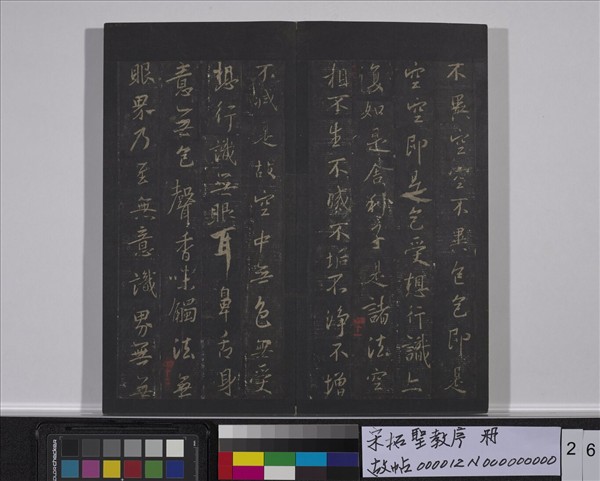 不異空空不異色色即是
空空即是色受想行識亦
復如是舍利子是諸法空
相不生不滅不垢不淨不增
不減是故空中無色無受
想行識無眼耳鼻舌身
意無色聲香味觸法無
眼界乃至無意識界無無
宋拓聖教序 冊
故帖000012N000000000
2 6